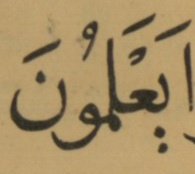 ا يَعْلَمُونَ